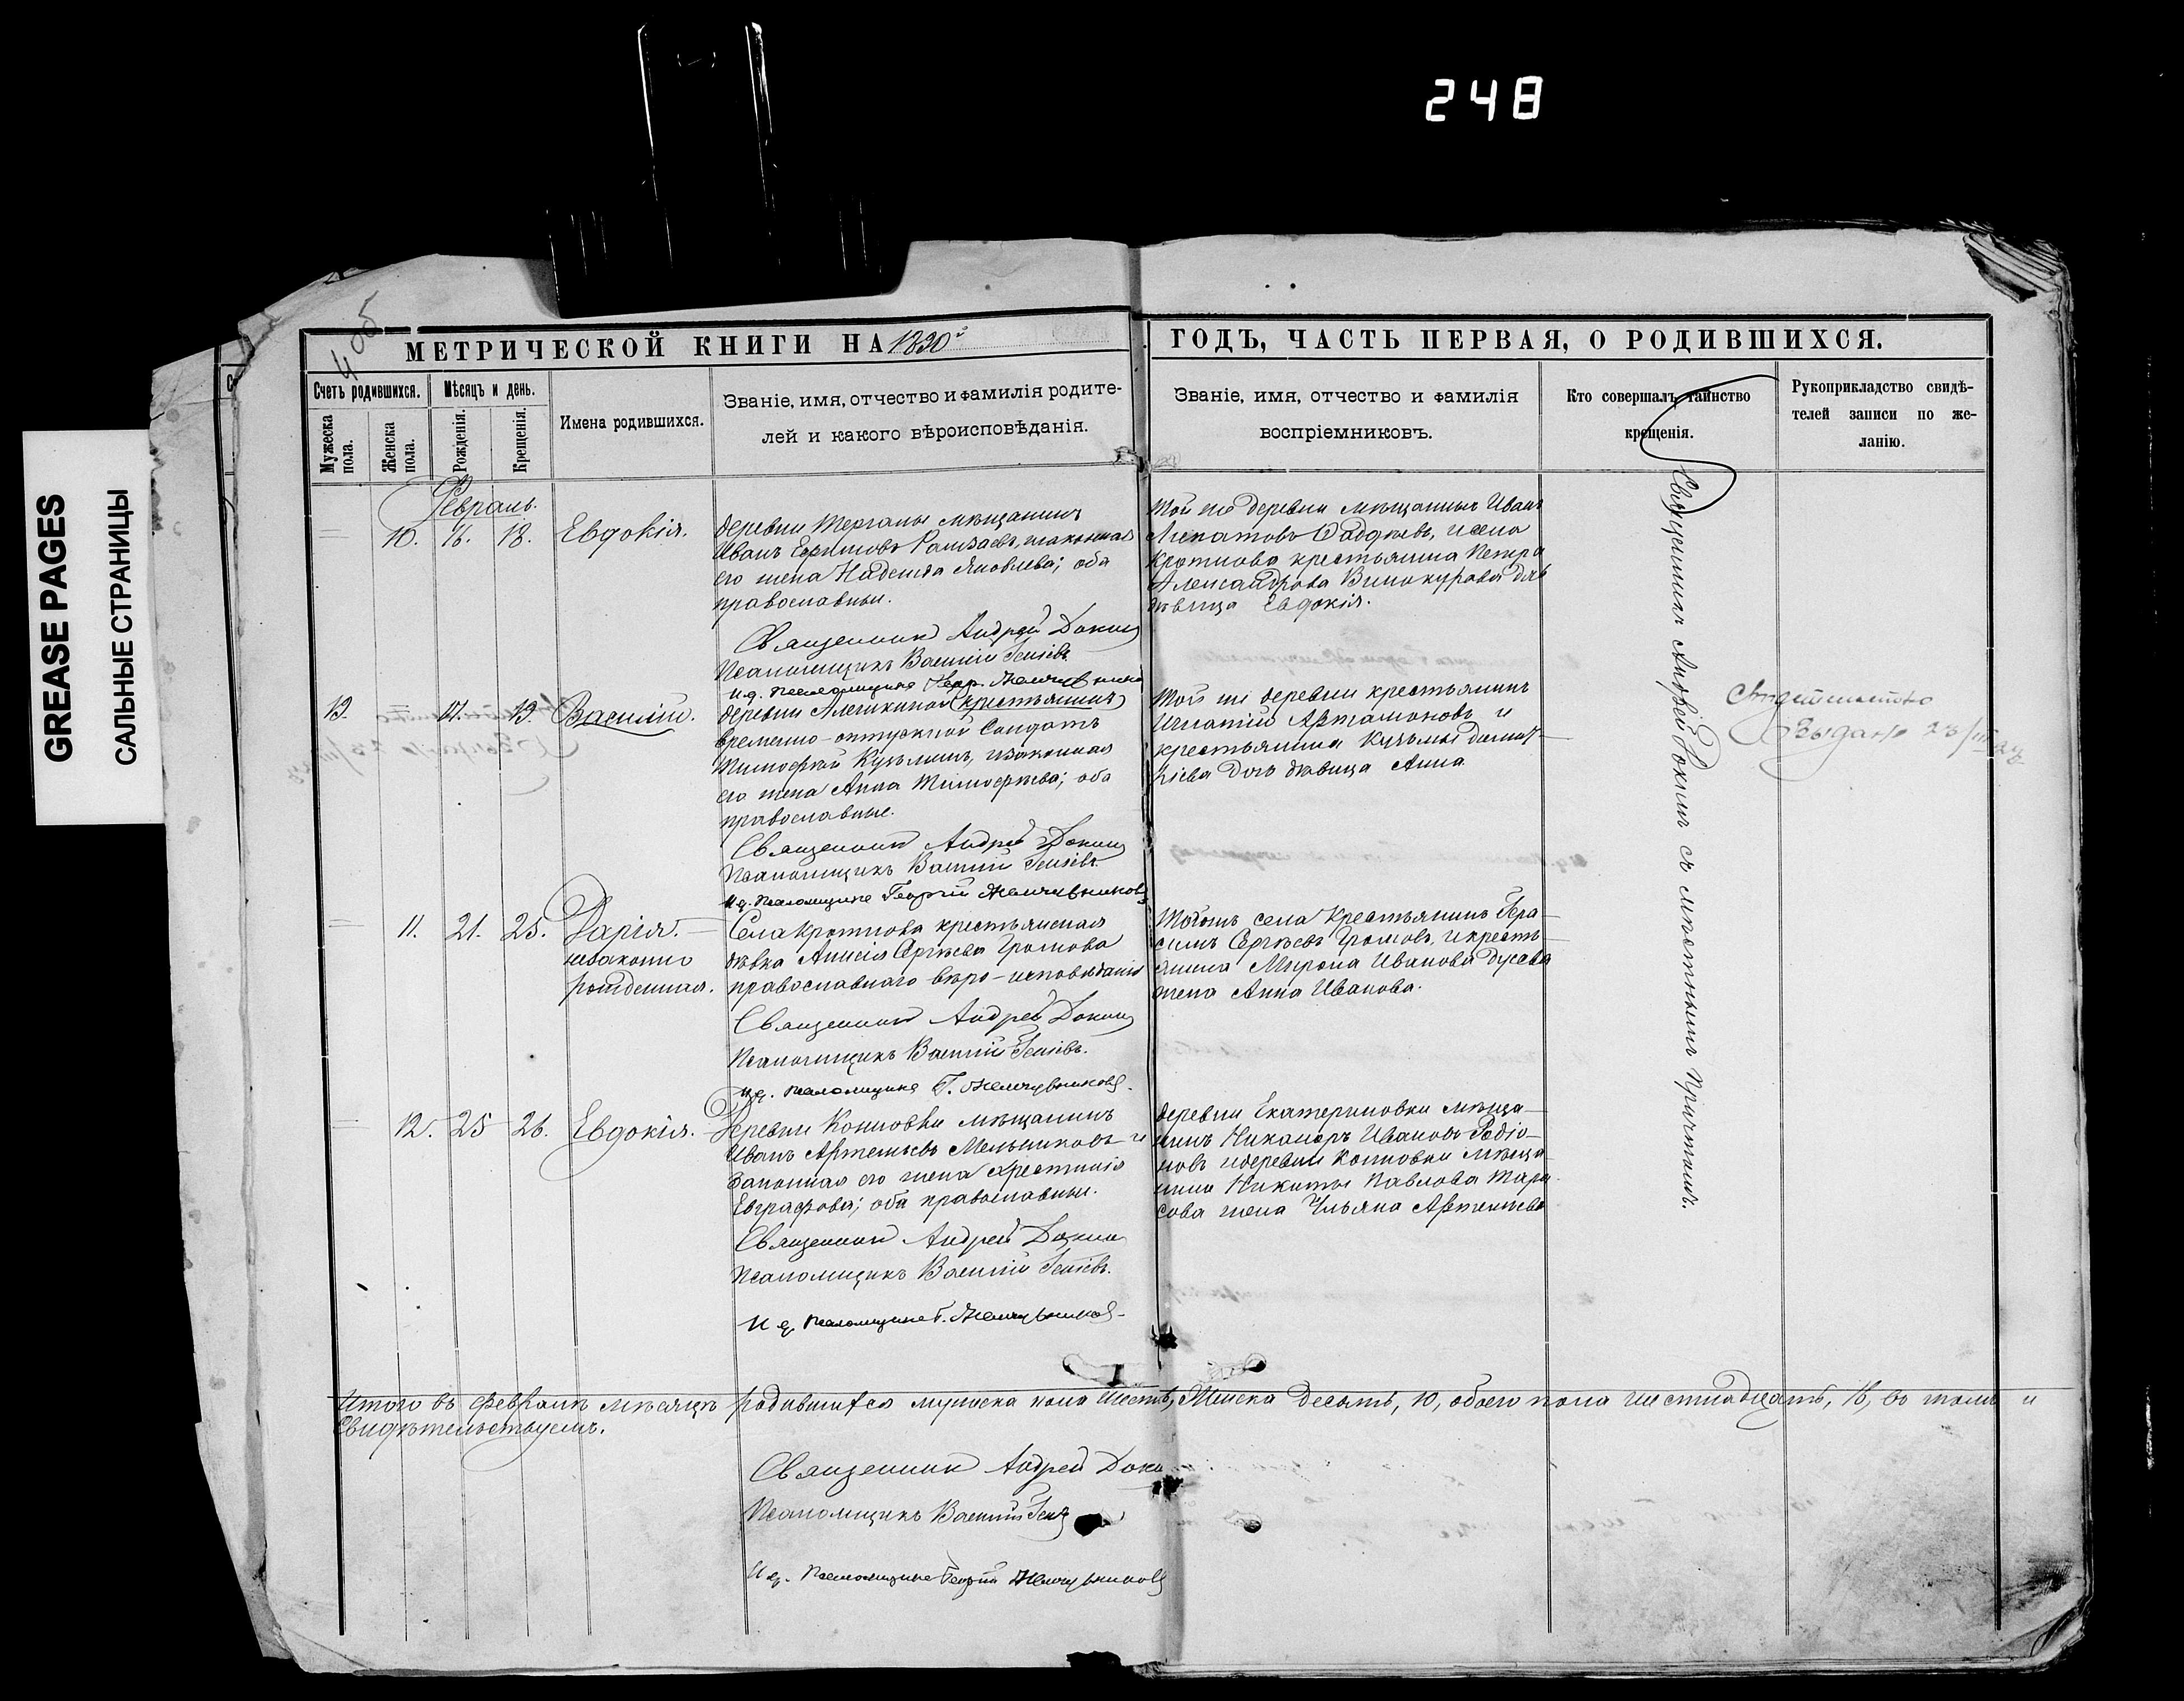 248
GREASE PAGES
САЛЬНЫЕ СТРАНИЦЫ
4 об
МЕТРИЧЕСКОЙ КНИГИ НА 1890й ГОДЪ, ЧАСТЬ ПЕРВАЯ, О РОДИВШИХСЯ.
Счетъ родившихся.
Мужеска пола.
Женска пола.
Мѣсяцъ и день.
Рожденія.
Крещенія.
Имена родившихся.
Званіе, имя, отчество и фамилія родите-
лей и какого вѣроисповѣданія.
Званіе, имя, отчество и фамилія
воспріемниковъ.
Кто совершалъ таинство
крещенія.
Рукоприкладство свидѣ-
телей записи по же-
ланію.
Февраль.
10. 16. 18. Евдокія.
деревни мѣщанинъ
Иванъ Ефимовъ законная
его жена Надежда Яковлева; оба
православные.
Священникъ Андрей Докинъ
Псаломщикъ Василій
И.д. псаломщика Жемчужниковъ
Той же деревни мѣщанинъ Иванъ
села
Кроткова крестьянина Петра
Александрова Винокурова дочь
дѣвица Евдокія.
17. 19. Василій.
деревни Алешкиной (крестьянинъ)
временно-отпускной солдатъ
Тимофей Кузьминъ, и законная
его жена Анна Тимофеева; оба
православные.
Священникъ Андрей Докинъ
Псаломщикъ Василій
И.д. псаломщика Георгій Жемчужниковъ
Той же деревни крестьянинъ
Игнатій Артамоновъ и
крестьянина Кузьмы
дочь дѣвица Анна
Свидетельство
выдано 23/III
11. 21. 25. Дарія.
незаконно
рожденная.
Села Кроткова крестьянская
дѣвка Анисія Сергѣева Громова
православнаго вѣро-исповѣданія
Священникъ Андрей Докинъ
Псаломщикъ Василій
И.д. псаломщика Г. Жемчужниковъ.
Тогожъ села крестьянинъ Гера-
симъ Сергѣевъ Громовъ, и кресть-
янина Мирона Иванова
жена Анна Иванова.
12. 25 26. Евдокія.
Деревни Коповки мѣщанинъ
Иванъ Артемьевъ Мельниковъ и
законная его жена Христинія
Евграфова; оба православные.
Священникъ Андрей Докинъ
Псаломщикъ Василій
И.д. псаломщика Г. Жемчужниковъ
деревни Екатериновки мѣща-
нинъ Никаноръ Ивановъ Родіо-
новъ и деревни Коповки мѣща-
нина Никиты Павлова Тара-
сова жена Ульяна Артемьева
Священникъ Андрей Докинъ съ мѣстнымъ причтомъ.
Итого въ февралѣ мѣсяцѣ родившихся мужеска пола шесть, женска десять, 10, обоего пола шестнадцать, 16, въ томъ и
свидѣтельствуемъ.
Священникъ Андрей Доки
Псаломщикъ Василій
И.д. псаломщика Георгій Жемчужниковъ